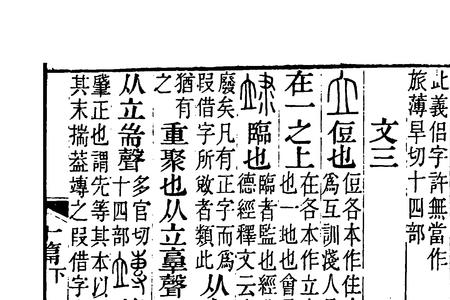 此義侶字許無當作
旅薄旱切十四部
文三
立 侸也 侸各本作住
爲互訓淺人
在一之上 在各本作立
也一地也會
臨也 臨者監也經
德經釋文云
廢矣凡有正字而爲
叚借字所敚者類此 从
猶有
之 重聚也从立𦎫聲
从立耑聲 多官切
十四部
肇正也謂先等其本以
其末揣葢竱之叚借字
十篇下